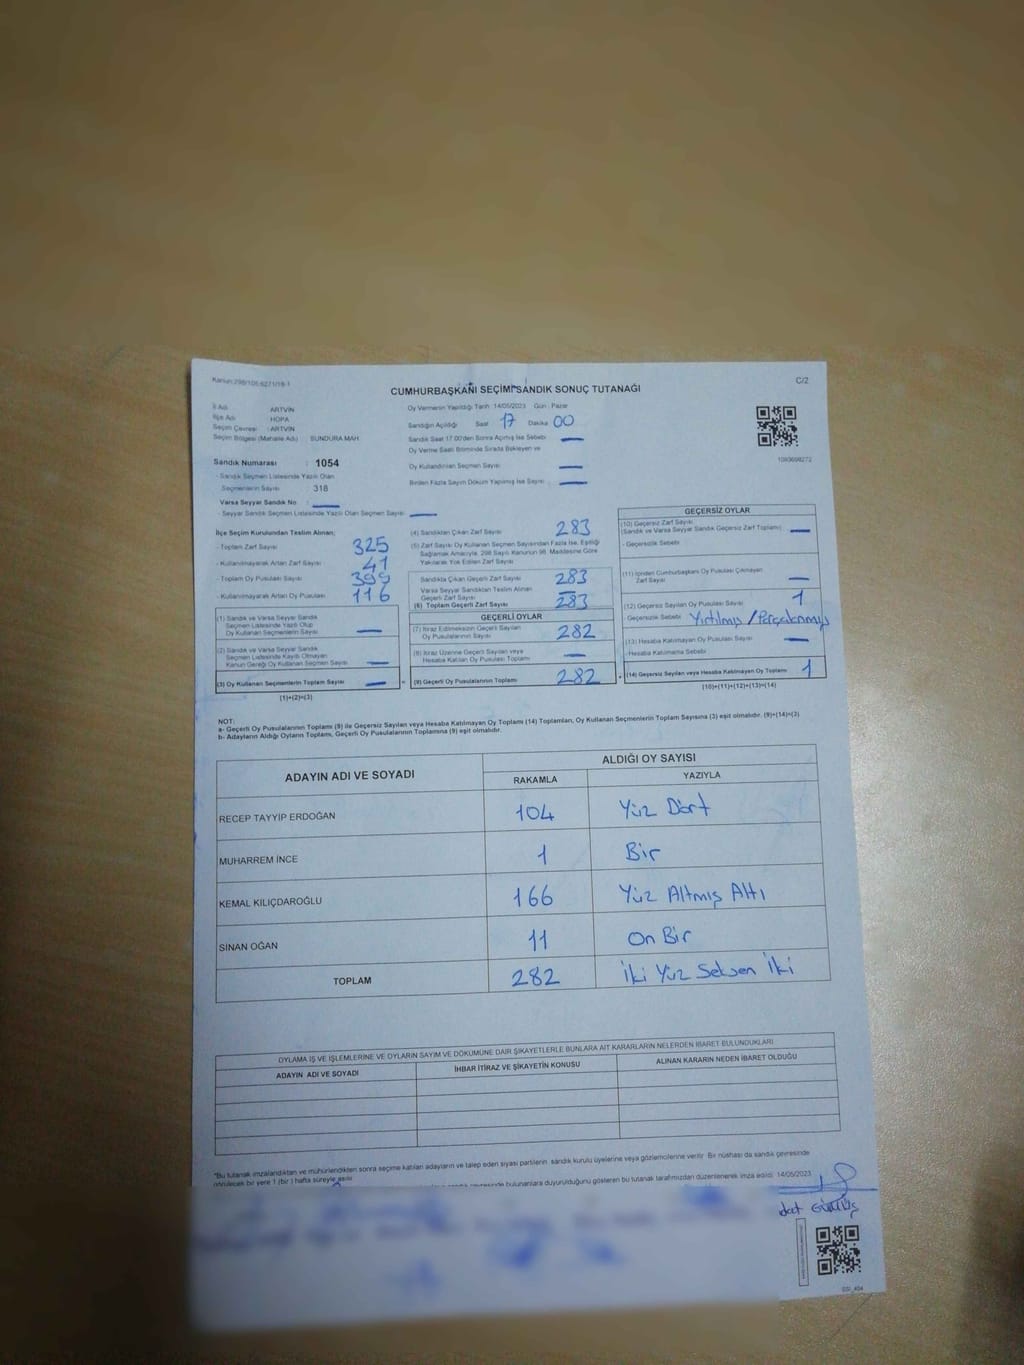 Kanun:298/105 6271/18-1
C/2
CUMHURBAŞKANI SEÇİMİ SANDIK SONUÇ TUTANAĞI
İl Adı : ARTVİN
İlçe Adı : HOPA
Seçim Çevresi : ARTVİN
Seçim Bölgesi (Mahalle Adı) SUNDURA MAH.
Oy Vermenin Yapıldığı Tarih 14/05/2023 Gün : Pazar
Sandığın Açıldığı Saat 17 Dakika 00
Sandık Saat 17.00'den Sonra Açılmış İse Sebebi —
Oy Verme Saati Bitiminde Sırada Bekleyen ve
Oy Kullandırılan Seçmen Sayısı —
Birden Fazla Sayım Döküm Yapılmış İse Sayısı —
Sandık Numarası : 1054
- Sandık Seçmen Listesinde Yazılı Olan
Seçmenlerin Sayısı 318
Varsa Seyyar Sandık No : —
- Seyyar Sandık Seçmen Listesinde Yazılı Olan Seçmen Sayısı —
İlçe Seçim Kurulundan Teslim Alınan;
- Toplam Zarf Sayısı 325
- Kullanılmayarak Artan Zarf Sayısı 41
- Toplam Oy Pusulası Sayısı 399
- Kullanılmayarak Artan Oy Pusulası 116
(1) Sandık ve Varsa Seyyar Sandık
Seçmen Listesinde Yazılı Olup
Oy Kullanan Seçmenlerin Sayısı —
(2) Sandık ve Varsa Seyyar Sandık
Seçmen Listesinde Kayıtlı Olmayan
Kanun Gereği Oy Kullanan Seçmen Sayısı —
(3) Oy Kullanan Seçmenlerin Toplam Sayısı — =
(1)+(2)=(3)
(4) Sandıktan Çıkan Zarf Sayısı 283
(5) Zarf Sayısı Oy Kullanan Seçmen Sayısından Fazla İse, Eşitliği
Sağlamak Amacıyla, 298 Sayılı Kanunun 98. Maddesine Göre
Yakılarak Yok Edilen Zarf Sayısı
Sandıkta Çıkan Geçerli Zarf Sayısı 283
Varsa Seyyar Sandıktan Teslim Alınan
Geçerli Zarf Sayısı —
(6) Toplam Geçerli Zarf Sayısı 283
GEÇERLİ OYLAR
(7) İtiraz Edilmeksizin Geçerli Sayılan
Oy Pusulalarının Sayısı 282
(8) İtiraz Üzerine Geçerli Sayılan veya
Hesaba Katılan Oy Pusulası Toplamı —
(9) Geçerli Oy Pusulalarının Toplamı 282 +
GEÇERSİZ OYLAR
(10) Geçersiz Zarf Sayısı
(Sandık ve Varsa Seyyar Sandık Geçersiz Zarf Toplamı) —
- Geçersizlik Sebebi
(11) İçinden Cumhurbaşkanı Oy Pusulası Çıkmayan
Zarf Sayısı —
(12) Geçersiz Sayılan Oy Pusulası Sayısı 1
- Geçersizlik Sebebi Yırtılmış / Parçalanmış
(13) Hesaba Katılmayan Oy Pusulası Sayısı —
- Hesaba Katılmama Sebebi
(14) Geçersiz Sayılan veya Hesaba Katılmayan Oy Toplamı 1
(10)+(11)+(12)+(13)=(14)
NOT:
a- Geçerli Oy Pusulalarının Toplamı (9) ile Geçersiz Sayılan veya Hesaba Katılmayan Oy Toplamı (14) Toplamları, Oy Kullanan Seçmenlerin Toplam Sayısına (3) eşit olmalıdır. (9)+(14)=(3)
b- Adayların Aldığı Oyların Toplamı, Geçerli Oy Pusulalarının Toplamına (9) eşit olmalıdır.
ADAYIN ADI VE SOYADI
ALDIĞI OY SAYISI
RAKAMLA YAZIYLA
RECEP TAYYİP ERDOĞAN 104 Yüz Dört
MUHARREM İNCE 1 Bir
KEMAL KILIÇDAROĞLU 166 Yüz Altmış Altı
SİNAN OĞAN 11 On Bir
TOPLAM 282 İki Yüz Seksen İki
OYLAMA İŞ VE İŞLEMLERİNE VE OYLARIN SAYIM VE DÖKÜMÜNE DAİR ŞİKAYETLERLE BUNLARA AİT KARARLARIN NELERDEN İBARET BULUNDUKLARI
ADAYIN ADI VE SOYADI İHBAR İTİRAZ VE ŞİKAYETİN KONUSU ALINAN KARARIN NEDEN İBARET OLDUĞU
*Bu tutanak imzalandıktan ve mühürlendikten sonra seçime katılan adayların ve talep eden siyasi partilerin sandık kurulu üyelerine veya gözlemcilerine verilir. Bir nüshası da sandık çevresinde
görülecek bir yere 1 (bir) hafta süreyle asılır.
bulunanlara duyurulduğunu gösteren bu tutanak tarafımızdan düzenlenerek imza edildi. 14/05/2023